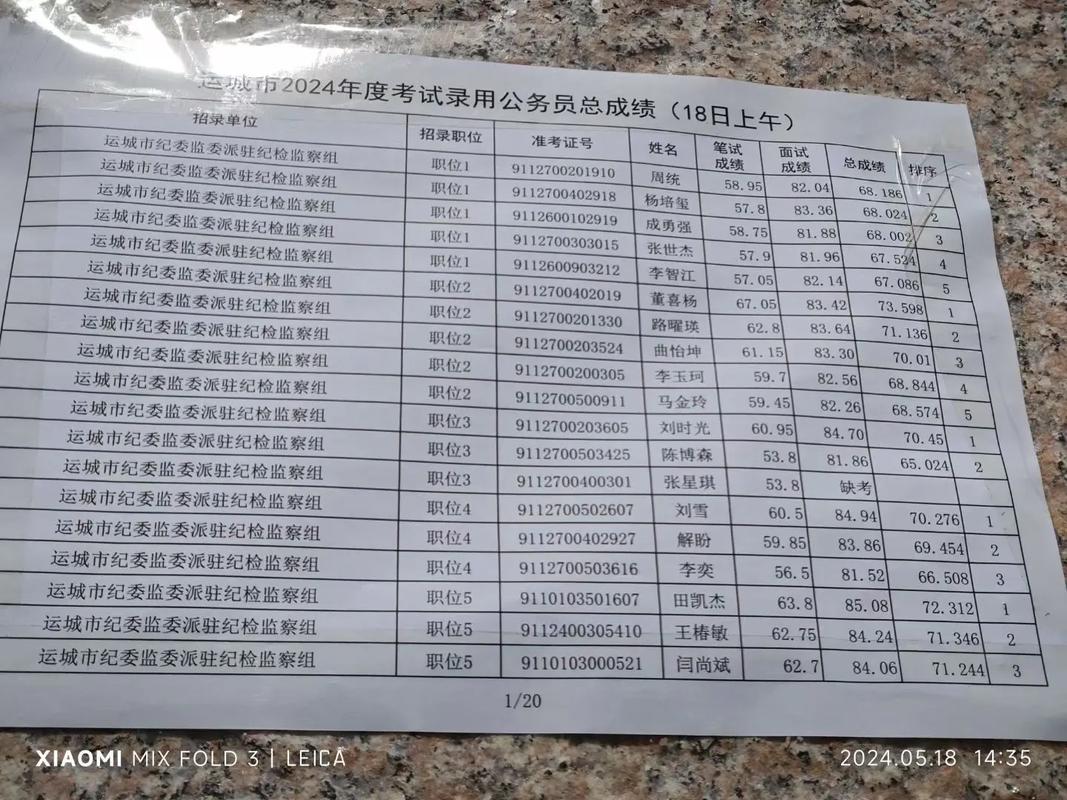 运城市2024年度考试录用公务员总成绩（18日上午）
招录单位 招录职位 准考证号 姓名 笔试成绩 面试成绩 总成绩 排序
运城市纪委监委派驻纪检监察组 职位1 9112700201910 周统 58.95 82.04 68.186 1
运城市纪委监委派驻纪检监察组 职位1 9112700402918 杨培玺 57.8 83.36 68.024 2
运城市纪委监委派驻纪检监察组 职位1 9112600102919 成勇强 58.75 81.88 68.002 3
运城市纪委监委派驻纪检监察组 职位1 9112700303015 张世杰 57.9 81.96 67.524 4
运城市纪委监委派驻纪检监察组 职位1 9112600903212 李智江 57.05 82.14 67.086 5
运城市纪委监委派驻纪检监察组 职位2 9112700402019 董喜杨 67.05 83.42 73.598 1
运城市纪委监委派驻纪检监察组 职位2 9112700201330 路曜瑛 62.8 83.64 71.136 2
运城市纪委监委派驻纪检监察组 职位2 9112700203524 曲怡坤 61.15 83.30 70.01 3
运城市纪委监委派驻纪检监察组 职位2 9112700200305 李玉珂 59.7 82.56 68.844 4
运城市纪委监委派驻纪检监察组 职位2 9112700500911 马金玲 59.45 82.26 68.574 5
运城市纪委监委派驻纪检监察组 职位3 9112700203605 刘时光 60.95 84.70 70.45 1
运城市纪委监委派驻纪检监察组 职位3 9112700503425 陈博森 53.8 81.86 65.024 2
运城市纪委监委派驻纪检监察组 职位3 9112700400301 张星琪 53.8 缺考
运城市纪委监委派驻纪检监察组 职位4 9112700502607 刘雪 60.5 84.94 70.276 1
运城市纪委监委派驻纪检监察组 职位4 9112700402927 解盼 59.85 83.86 69.454 2
运城市纪委监委派驻纪检监察组 职位4 9112700503616 李奕 56.5 81.52 66.508 3
运城市纪委监委派驻纪检监察组 职位5 9110103501607 田凯杰 63.8 85.08 72.312 1
运城市纪委监委派驻纪检监察组 职位5 9112400305410 王椿敏 62.75 84.24 71.346 2
运城市纪委监委派驻纪检监察组 职位5 9110103000521 闫尚斌 62.7 84.06 71.244 3
1/20
XIAOMI MIX FOLD 3 | LEICA
2024.05.18 14:35